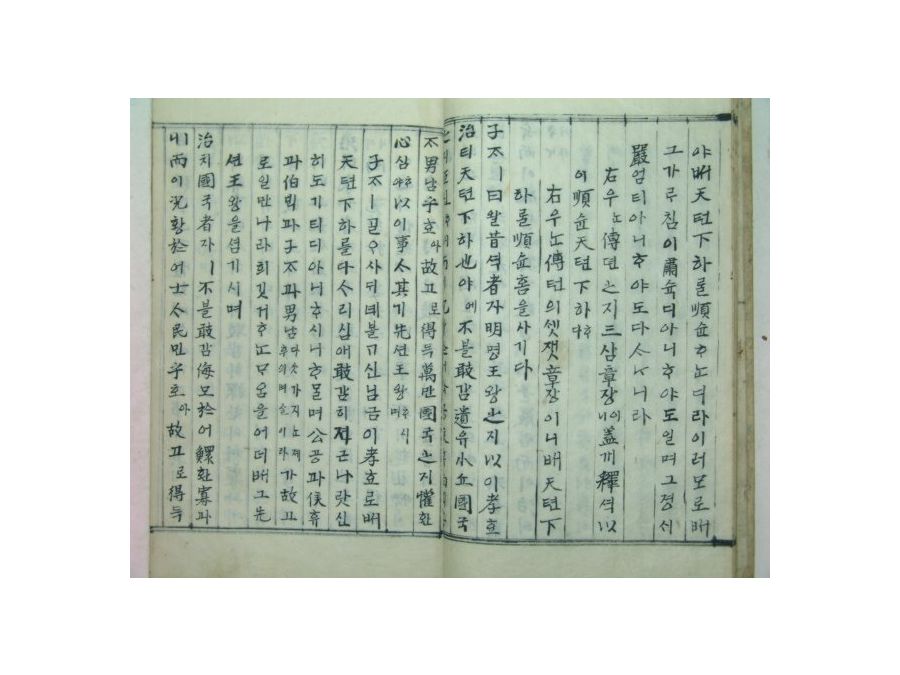 天텬下하롤順슌ᄒᆞᄂᆞ니라이러모로
그가ᄅᆞ침이肅슉디아니ᄒᆞ야도일며그졍
嚴엄티아니ᄒᆞ야도다ᄉᆞᄂᆞ니라
右우ᄂᆞᆫ傳뎐之지三삼章장이니蓋개釋셕以
順슌天텬下하
右우ᄂᆞᆫ傳뎐의셋잿章장이니天텬下
하롤順슌홈을사기다
子ᄌᆞㅣ曰왈昔셕者쟈明명王왕之지以이孝효
治티天텬下하也야에不블敢감遺유小쇼國국
子ᄌᆞ男남乎호아故고로得득萬만國국之지懽환
心심ᄒᆞ야以이事ᄉᆞ其기先션王왕ᄒᆞ시며
子ᄌᆞㅣᄀᆞᆯᄋᆞ사ᄃᆡ녜ᄇᆞᆯᄀᆞ신님금이孝효로
天텬下하ᄅᆞᆯ다ᄉᆞ리심애敢감히져근나랏신
하도기티디아니ᄒᆞ시니ᄒᆞ몰며公공과侯후
과伯ᄇᆡᆨ과子ᄌᆞ와男남가故고
로일만나라희깃거ᄒᆞᄂᆞᆫᄆᆞᄋᆞᆷ을어뎌그先
션王왕을셤기시며
治치國국者쟈ㅣ不블敢감侮모於어鰥환寡과
而이況황於어士ᄉᆞ民민乎호아故고로得득